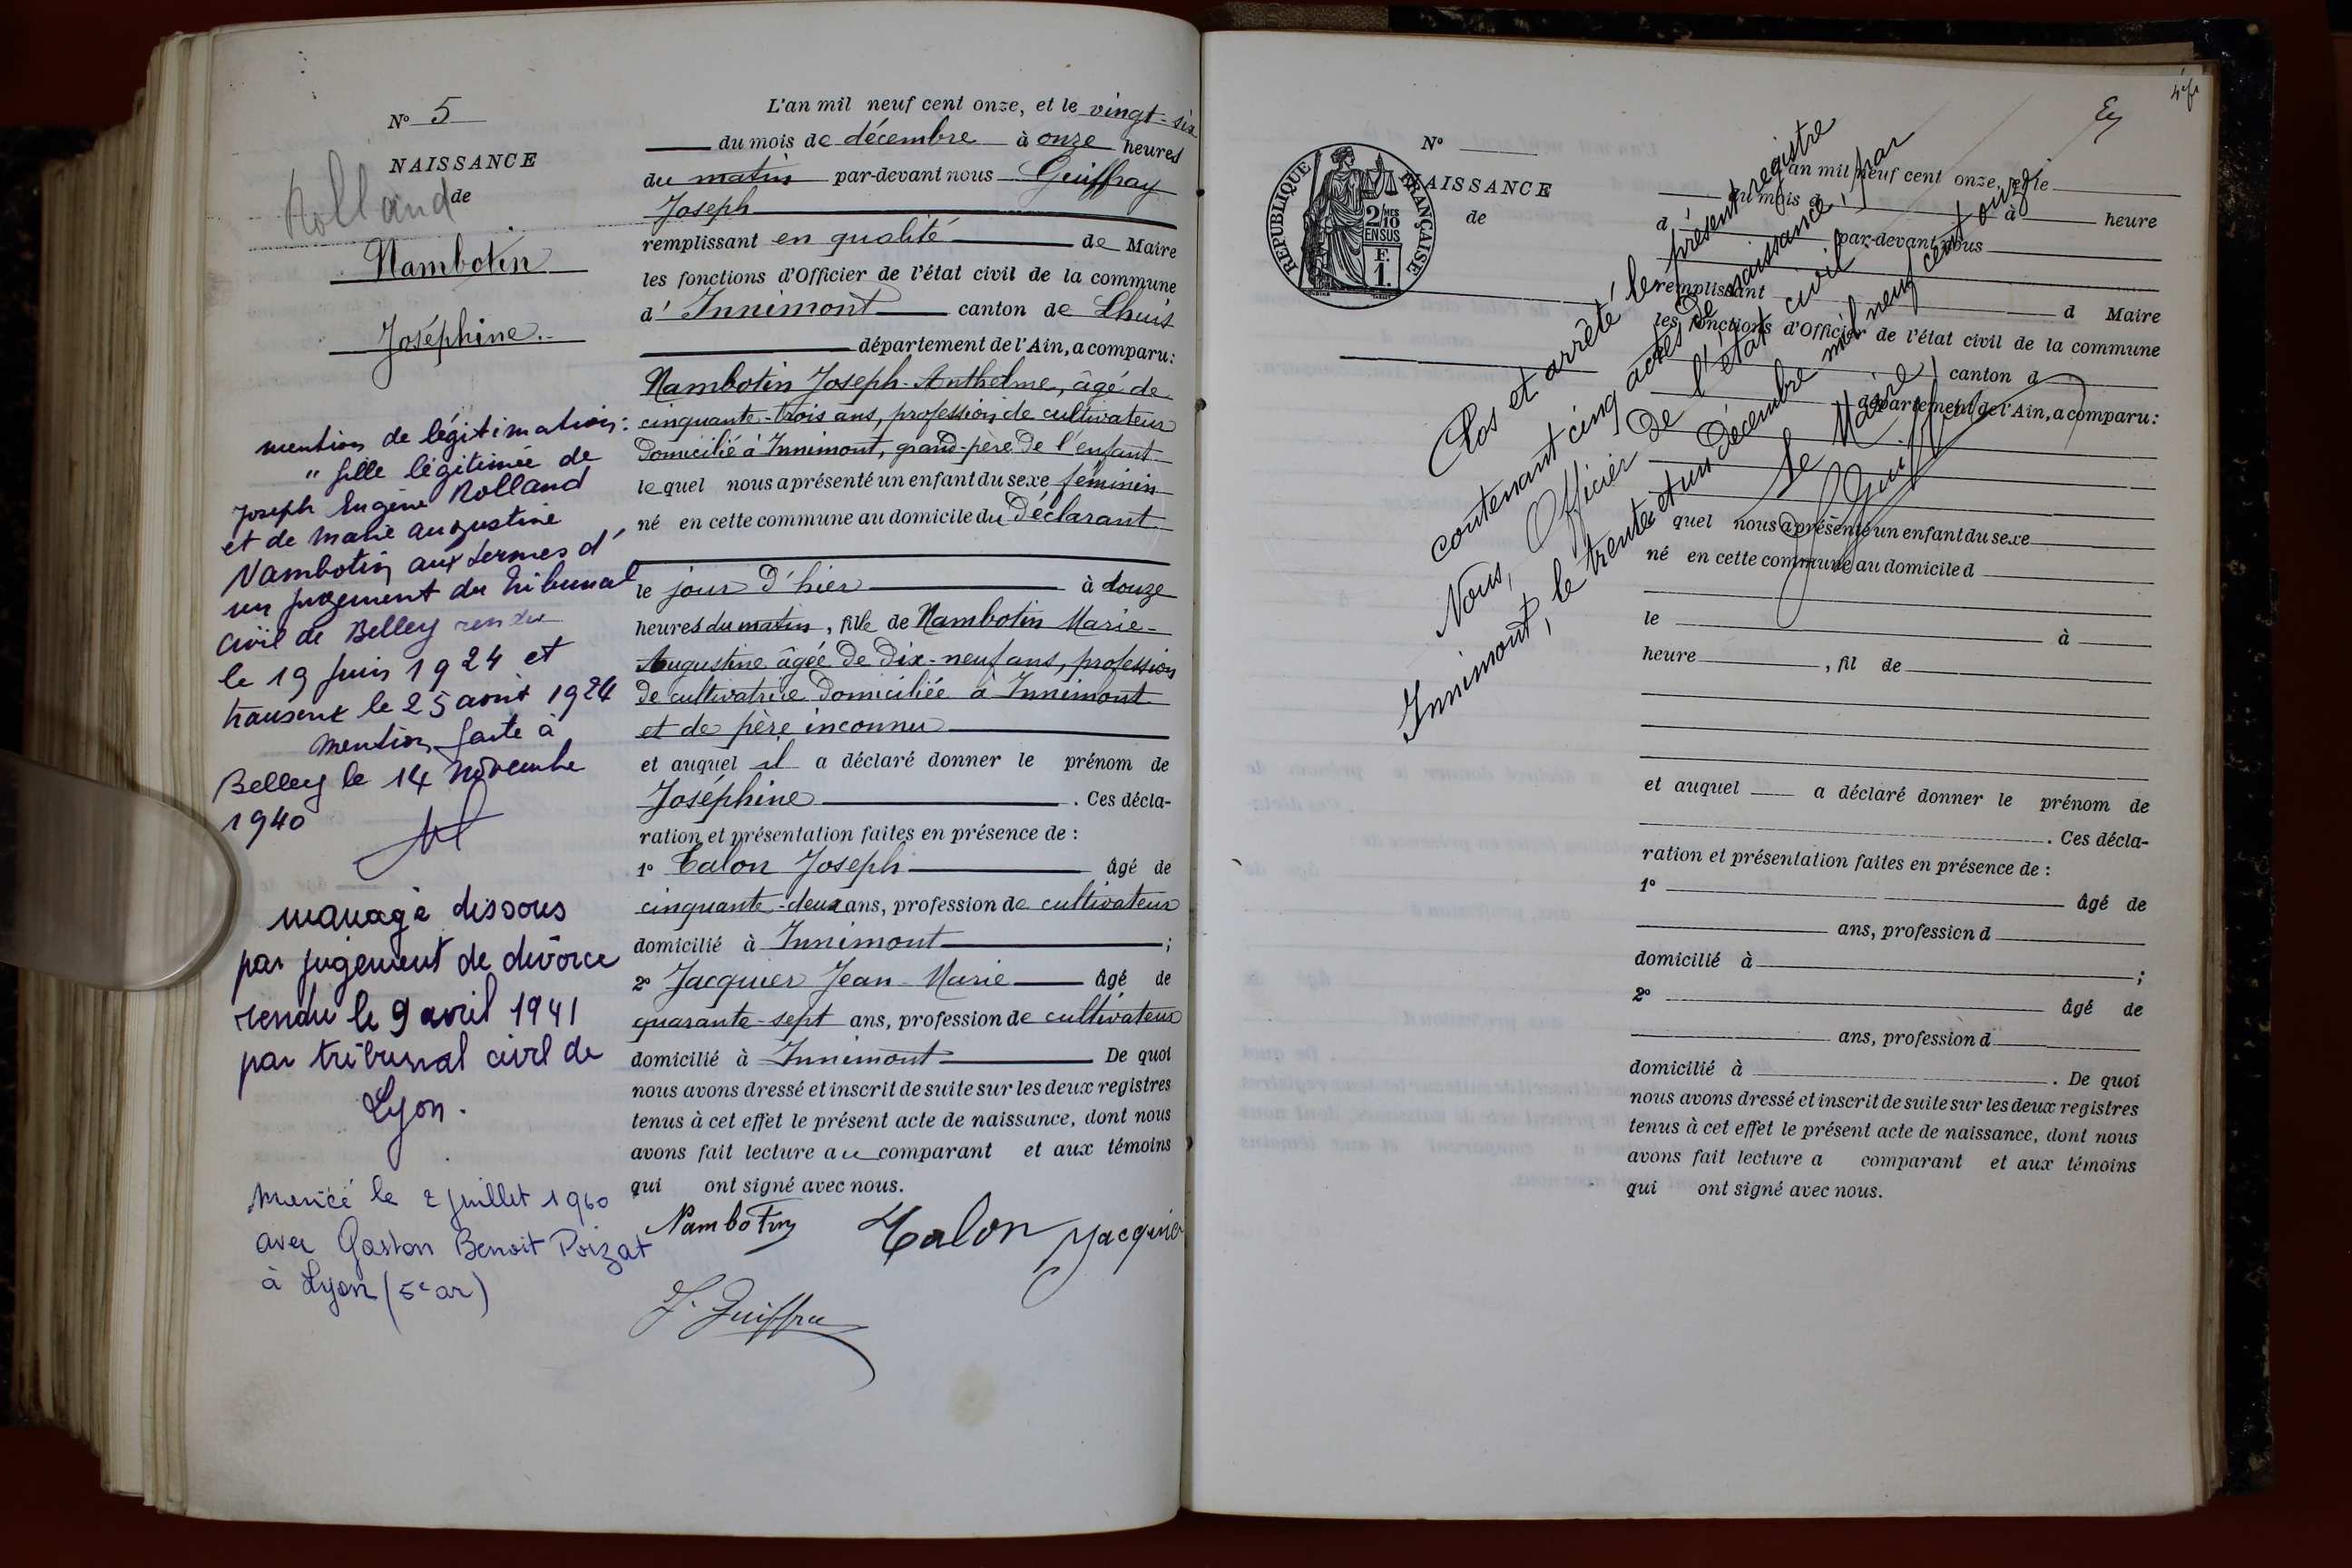 N° 5
NAISSANCE
de
Rolland
Nambotin
Joséphine.
mention de légitimation :
" fille légitimée de
Joseph Eugène Rolland
et de Marie Augustine
Nambotin aux termes d'
un jugement du tribunal
civil de Belley rendu
le 19 juin 1924 et
transcrit le 25 août 1924
Mention faite à
Belley le 14 Novembre
1940
mariage dissous
par jugement de divorce
rendu le 9 avril 1941
par tribunal civil de
Lyon.
Mariée le 2 juillet 1960
avec Gaston Benoit Poizat
à Lyon (5e ar)
L'an mil neuf cent onze, et le vingt-six
du mois de décembre à onze heures
du matin par-devant nous Guiffray
Joseph
remplissant en qualité de Maire
les fonctions d'Officier de l'état civil de la commune
d'Innimont canton de Lhuis
département de l'Ain, a comparu :
Nambotin Joseph-Anthelme, âgé de
cinquante-trois ans, profession de cultivateur
domicilié à Innimont, grand-père de l'enfant
lequel nous a présenté un enfant du sexe féminin
né en cette commune au domicile du déclarant
le jour d'hier à douze
heures du matin, fille de Nambotin Marie-
Augustine âgée de dix-neuf ans, profession
de cultivatrice domiciliée à Innimont
et de père inconnu
et auquel il a déclaré donner le prénom de
Joséphine . Ces décla-
ration et présentation faites en présence de :
1° Talon Joseph âgé de
cinquante-deux ans, profession de cultivateur
domicilié à Innimont ;
2° Jacquier Jean-Marie âgé de
quarante-sept ans, profession de cultivateur
domicilié à Innimont De quoi
nous avons dressé et inscrit de suite sur les deux registres
tenus à cet effet le présent acte de naissance, dont nous
avons fait lecture au comparant et aux témoins
qui ont signé avec nous.
Nambotin Talon Jacquier
J. Guiffray
N°
NAISSANCE
de
RÉPUBLIQUE FRANÇAISE
2/MES
10
EN SUS
F.
1.
L'an mil neuf cent onze, et le
du mois d à heure
d par-devant nous
remplissant d Maire
les fonctions d'Officier de l'état civil de la commune
canton d
département de l'Ain, a comparu :
quel nous a présenté un enfant du sexe
né en cette commune au domicile d
le à
heure , fil de
et auquel a déclaré donner le prénom de
. Ces décla-
ration et présentation faites en présence de :
1° âgé de
ans, profession d
domicilié à ;
2° âgé de
ans, profession d
domicilié à . De quoi
nous avons dressé et inscrit de suite sur les deux registres
tenus à cet effet le présent acte de naissance, dont nous
avons fait lecture a comparant et aux témoins
qui ont signé avec nous.
Clos et arrêté le présent registre
contenant cinq actes de naissance, par
Nous, Officier de l'état civil
Innimont, le trente et un décembre mil neuf cent onze
Le Maire
J Guiffray